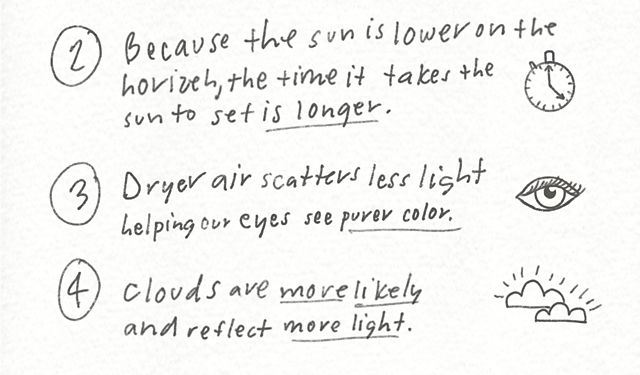 2 Because the sun is lower on the
horizeh, the time it takes the
sun to set is longer.
3 Dryer air scatters less light
helping our eyes see purer color.
4 Clouds are more likely
and reflect more light.